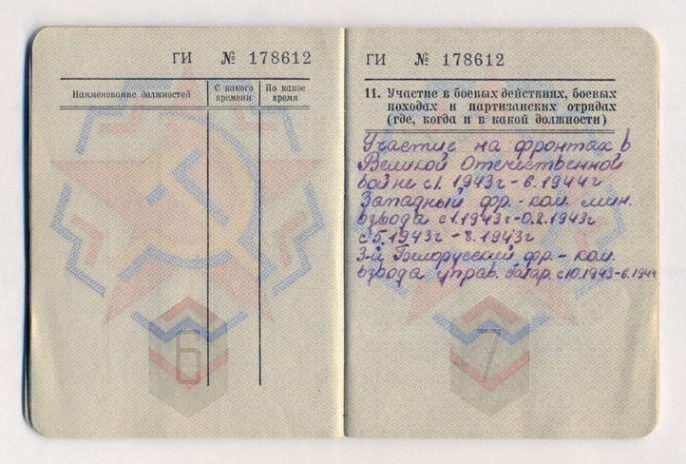 ГИ № 178612
Наименование должностей
С какого времени
По какое время
6
ГИ № 178612
11. Участие в боевых действиях, боевых
походах и партизанских отрядах
(где, когда и в какой должности)
Участие на фронтах в
Великой Отечественной
войне с 1. 1943г - 6. 1944г
Западный фр. - ком. мин.
взвода с 1.1943г-0.2.1943г
с 5. 1943г - 8. 1943г
3-й Белорусский фр. - ком.
взвода управ. батар. с 10.1943-6.1944
7